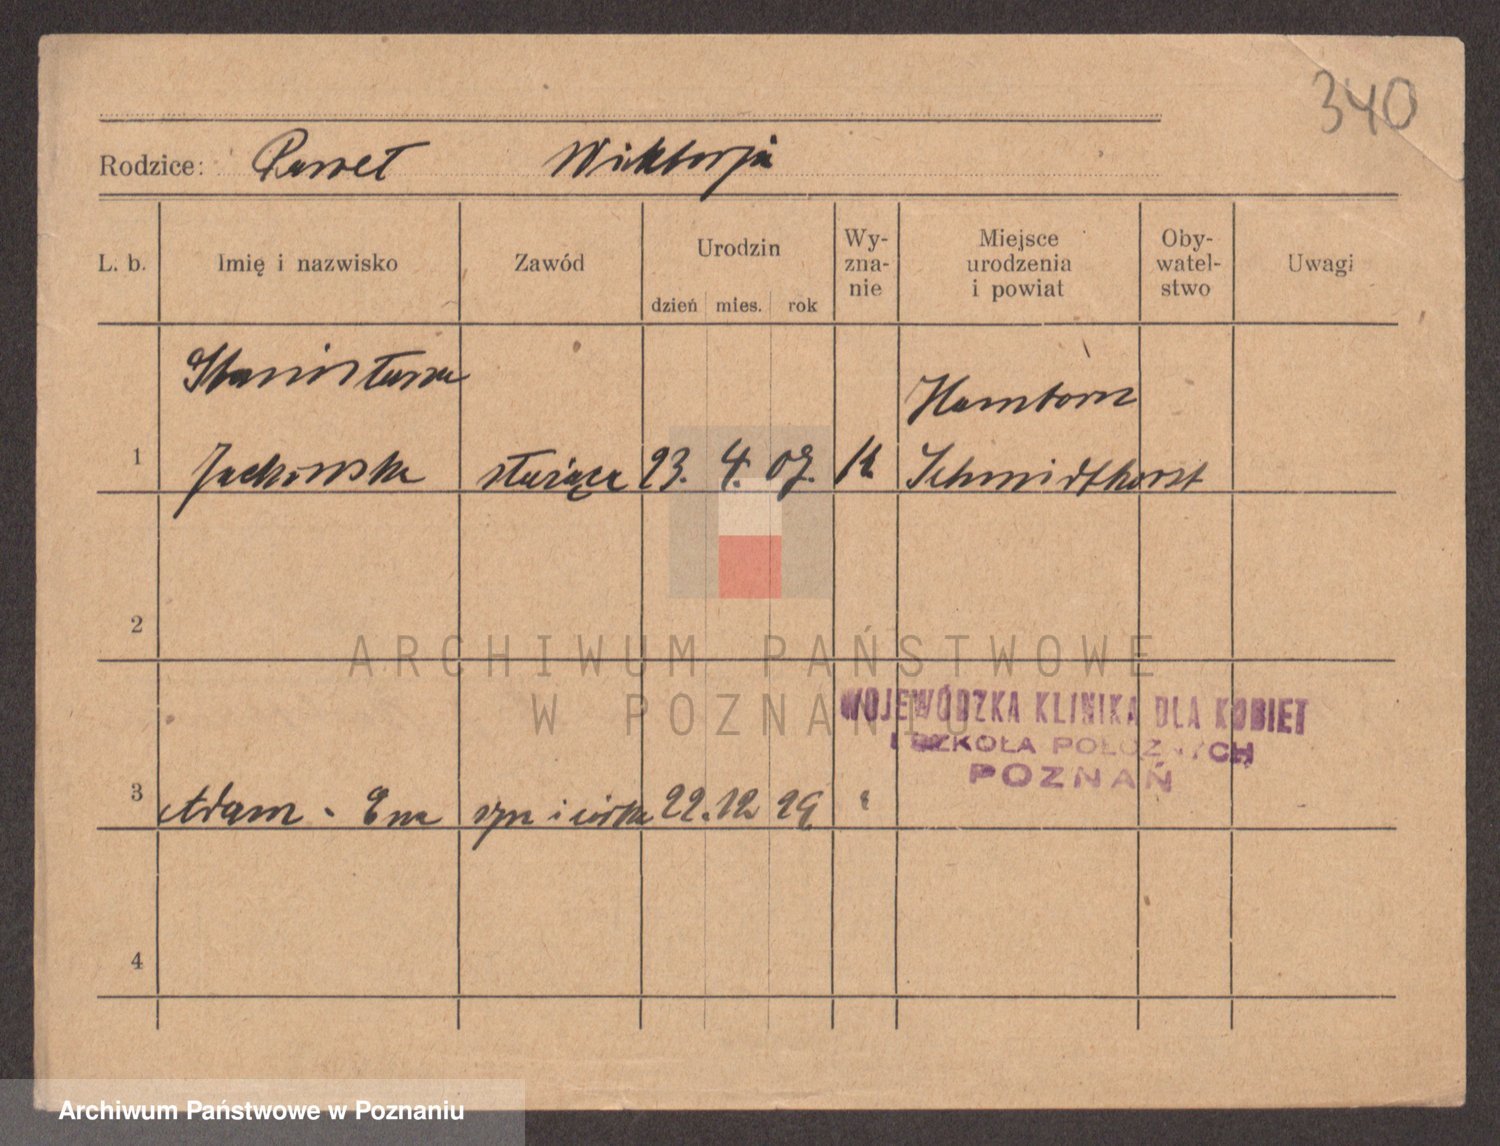 340
Rodzice: Paweł Wiktorja
L. b. Imię i nazwisko Zawód Urodzin dzień mies. rok Wy-zna-nie Miejsce urodzenia i powiat Oby-watel-stwo Uwagi
Stanisława Hamborn
1 Jackowska służąca 23. 4. 07. k. Schmidthorst
2
ARCHIWUM PAŃSTWOWE
W POZNANIU
WOJEWÓDZKA KLINIKA DLA KOBIET
I SZKOŁA POŁOŻNYCH
POZNAŃ
3 Adam - Ewa syn i córka 22. 12 29
4
Archiwum Państwowe w Poznaniu